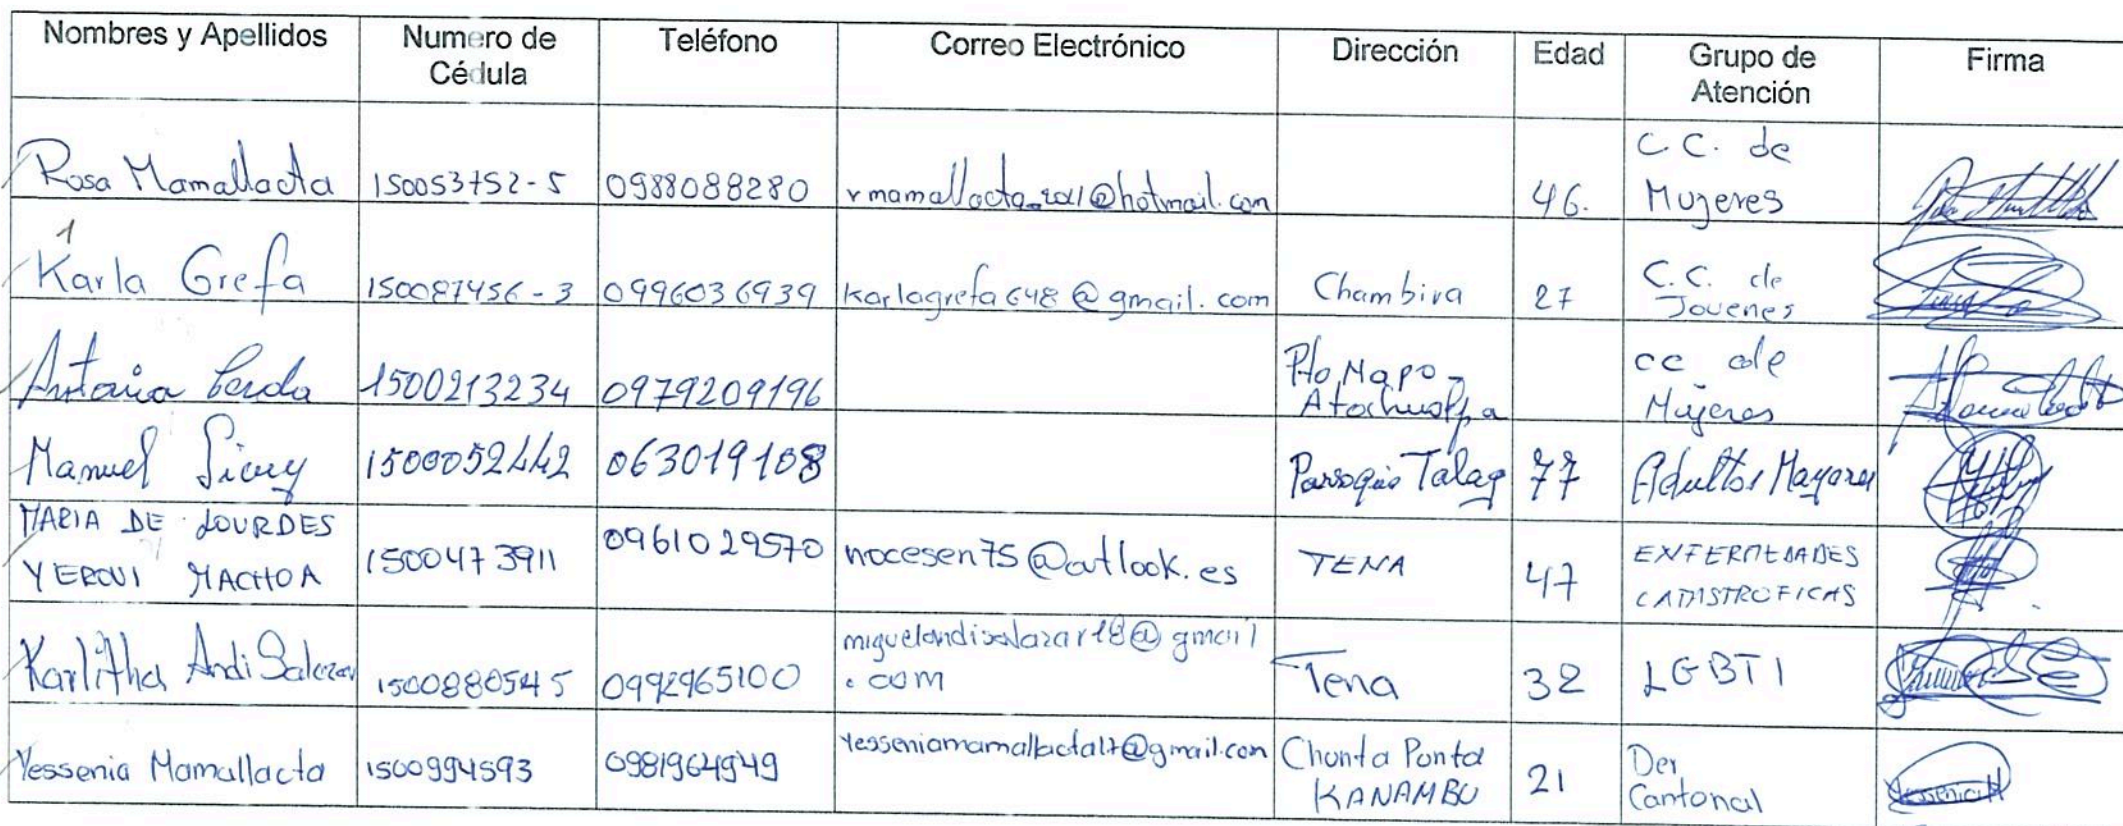 Nombres y Apellidos | Numero de Cédula | Teléfono | Correo Electrónico | Dirección | Edad | Grupo de Atención | Firma
Rosa Mamallacta | 150053752-5 | 0988088280 | rmamallacta_2011@hotmail.com | | 46. | C.C. de Mujeres
1
Karla Grefa | 150087456-3 | 0996036939 | karlagrefa648@gmail.com | Chambira | 27 | C.C. de Jovenes
Antonia Cerda | 1500213234 | 0979209196 | | Pto Napo - Atachualpa | | cc de Mujeres
Manuel | 1500052442 | 063019108 | | Parroquia Talag | 77 | Adultos Mayores
MARIA DE LOURDES YEROVI MACHOA | 1500473911 | 0961029570 | nocesen75@outlook.es | TENA | 47 | ENFERMEDADES CATASTROFICAS
Karlitha Andi Salazar | 1500880545 | 0992965100 | miguelandisalazar18@gmail.com | Tena | 32 | LGBTI
Yessenia Mamallacta | 1500994593 | 0981964949 | Yesseniamamallacta17@gmail.com | Chonta Punta KANAMBU | 21 | Der Cantonal